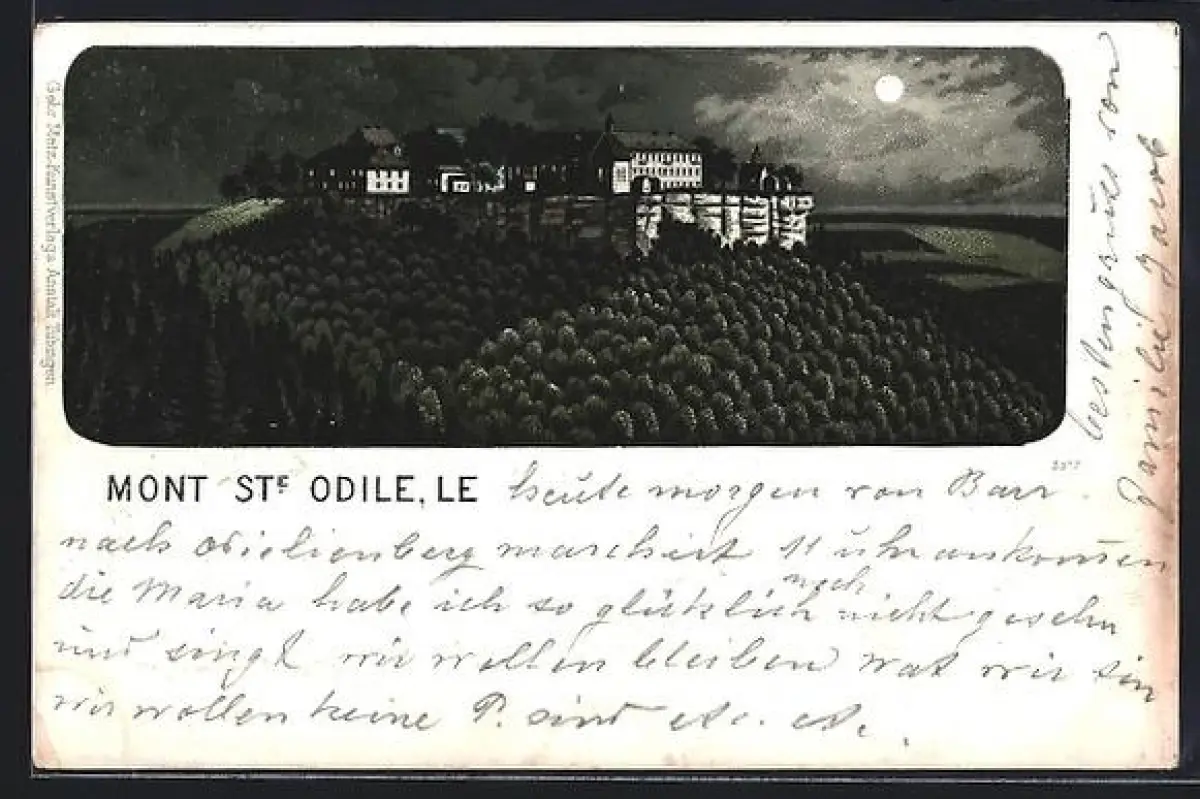 Gebr. Metz, Kunstverlags Anstalt, Tübingen.
MONT STE ODILE, LE
heute morgen von Barr
nach Odielienberg marchiert 11 uhr ankomen
die Maria habe ich so glücklich noch nicht gesehn
und singt wir wollen bleiben wat wir sin
wir wollen keine P. sind etc. etc.
besten gruss von
Familie